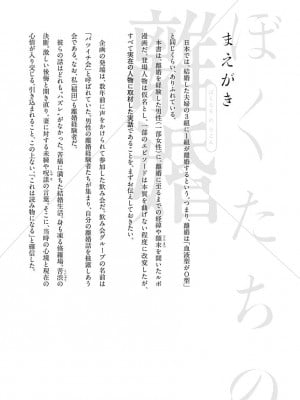 ぼくたちの
離婚
まえがき
日本では、結婚した夫婦の3組に1組が離婚するという。つまり、離婚は「血液型がO型」
と同じくらい、ありふれている。
本書は、離婚を経験した男性(一部女性)に、離婚に至るまでの経緯や顛末を聞いたルポ
漫画だ。登場人物は仮名とし、一部のエピソードは本質を曲げない程度に改変したが、
すべて実在の人物に取材した実話であることを、まずお伝えしておきたい。
企画の発端は、数年前に声をかけられて参加した飲み会だ。飲み会グループの名前は
「バツイチ会」と呼ばれていた。男性の離婚経験者たちが集まり、自分の離婚話を披露しあう
会である。なお、私(稲田)も離婚経験者だ。
彼らの話はどれも、ハズレがなかった。苦痛に満ちた結婚生活、身も凍る修羅場、苦渋の
決断、激しい後悔と開き直り。妻に対する未練や呪詛の言葉。そこに、当時の心境と現在の
心情が入り交じる。引き込まれること、この上ない。「これは読み物になる」と確信した。